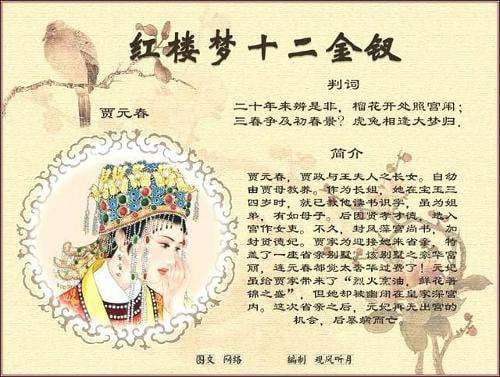 红楼梦十二金钗
判词
二十年来辨是非，榴花开处照宫闱；
三春争及初春景？虎兔相逢大梦归。
贾元春
简介
贾元春，贾政与王夫人之长女。自幼
由贾母教养。作为长姐，她在宝玉三
四岁时，就已教他读书识字，虽为姐
弟，有如母子。后因贤孝才德，选入
宫作女吏。不久，封凤藻宫尚书，加
封贤德妃。贾家为迎接她来省亲，特
盖了一座省亲别墅。该别墅之豪华富
丽，连元春都觉太奢华过费了！元妃
虽给贾家带来了“烈火烹油，鲜花着
锦之盛”，但她却被幽闭在皇家深宫
内。这次省亲之后，元妃再无出宫的
机会，后暴病而亡
图文 网络 编制 观风听月